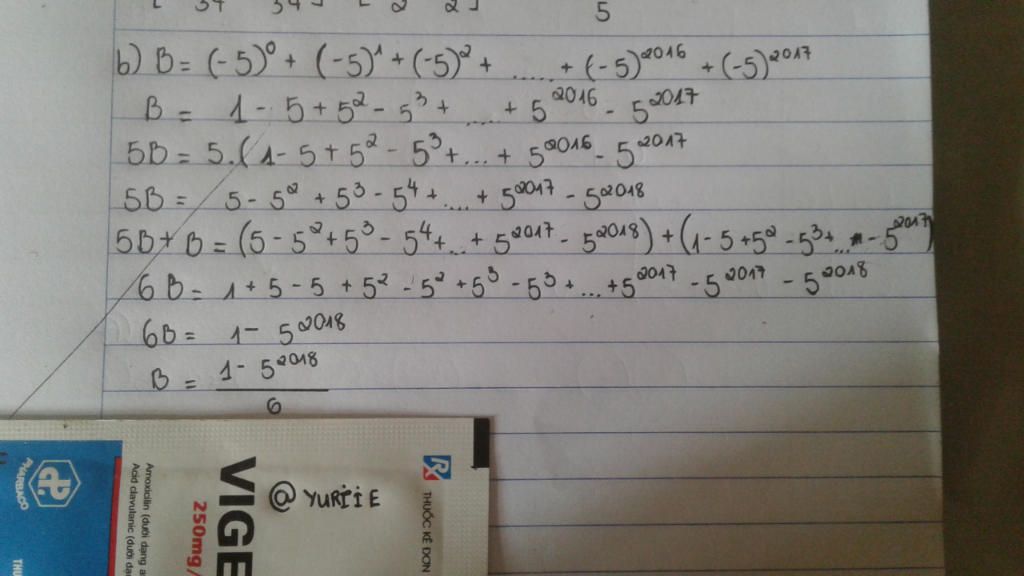 5
b) B = (-5)⁰ + (-5)¹ + (-5)² + ..... + (-5)²⁰¹⁶ + (-5)²⁰¹⁷
B = 1 - 5 + 5² - 5³ + .... + 5²⁰¹⁶ - 5²⁰¹⁷
5B = 5.(1 - 5 + 5² - 5³ + ... + 5²⁰¹⁶ - 5²⁰¹⁷
5B = 5 - 5² + 5³ - 5⁴ + .... + 5²⁰¹⁷ - 5²⁰¹⁸
5B + B = (5 - 5² + 5³ - 5⁴ + ... + 5²⁰¹⁷ - 5²⁰¹⁸) + (1 - 5 + 5² - 5³ + ... - 5²⁰¹⁷)
6B = 1 + 5 - 5 + 5² - 5² + 5³ - 5³ + ... + 5²⁰¹⁷ - 5²⁰¹⁷ - 5²⁰¹⁸
6B = 1 - 5²⁰¹⁸
B = 1 - 5²⁰¹⁸
6
PHARBACO
Amoxicilin (dưới dạng
Acid clavulanic (dưới
250mg/
VIGE
@ YURIIE
Rx THUỐC KÊ ĐƠN